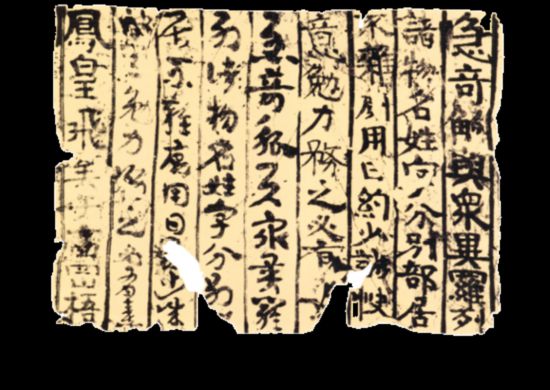 急奇觚與衆異羅列
諸物名姓字分別部居
不雜廁用日約少誠快
意勉力務之必有
急奇觚與衆異羅
列諸物名姓字分別
居不雜廁用日
勉力務之
鳳皇飛梧